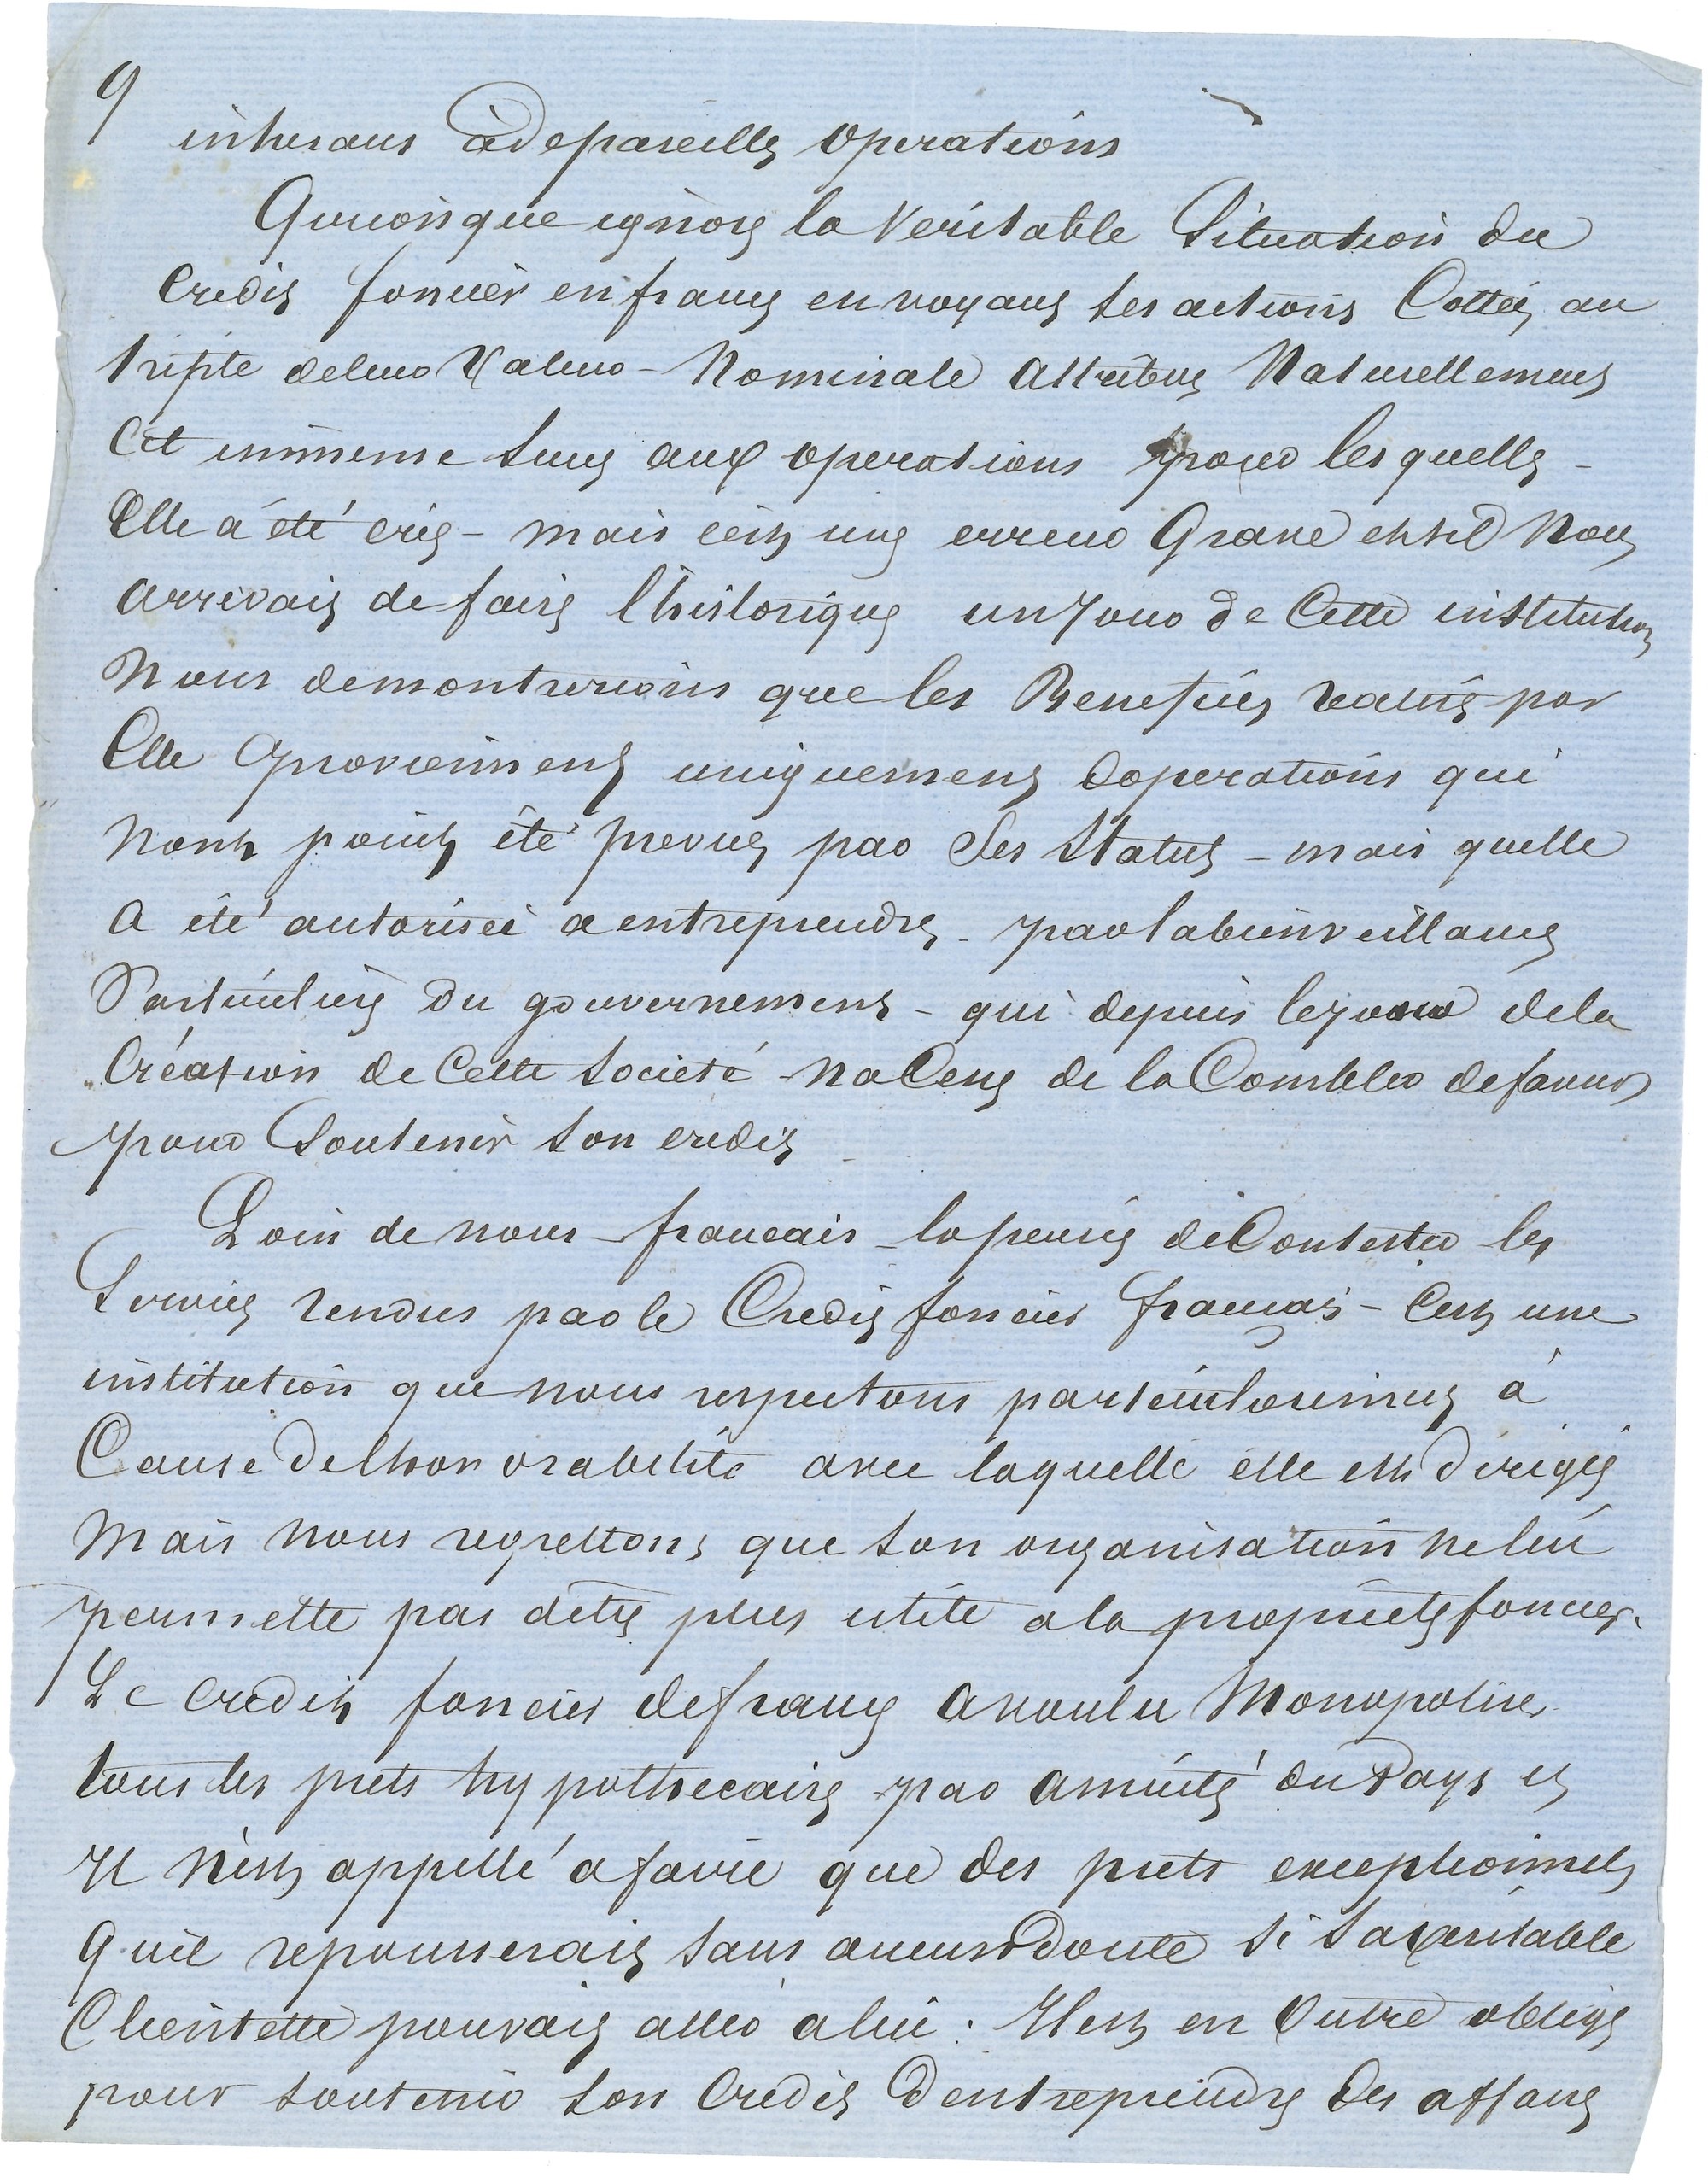 9
inherans à de pareilles operations
Quiconque ignore la veritable Situation du
Credit foncier en france en voyant ses actions Cottées au
triple de leur Valeur - Nominale attribue Naturellement
Cet immense succes aux operations pour les quelles -
Elle a été crée - mais c'est une erreur Grave et s'il Nous
arrivait de faire l'historique un Jour de Cette institution
Nous demontrerions que les Benefices realisés par
Elle proviennent uniquement d'operations qui
Nont point été prevues par Ses Statuts - mais quelle
a été autorisée a entreprendre - par la bienveillance
Particuliere du gouvernement - qui depuis le jour de la
Création de Cette Société na Cessé de la Combler de faveurs
pour Soutenir son credit
Loin de nous - francais - la pensée de Contester les
Services rendus par le Credit foncier français - Cest une
institution que nous respectons particulierement à
Cause de lhonorabilité avec laquelle elle est dirigée
Mais nous regrettons que son organisation ne lui
permette pas detre plus utile a la proprieté fonciere.
Le credit foncier de france a voulu Monopoliser
tous les prets hypothecaires par annuité du Pays et
Il n'est appellé a faire que des prets exceptionnels
Quil repousserait sans aucun doute si sa veritable
Clientelle pouvait aller a lui. Il est en Outre obligé
pour soutenir son Credit d'entreprendre des affaires